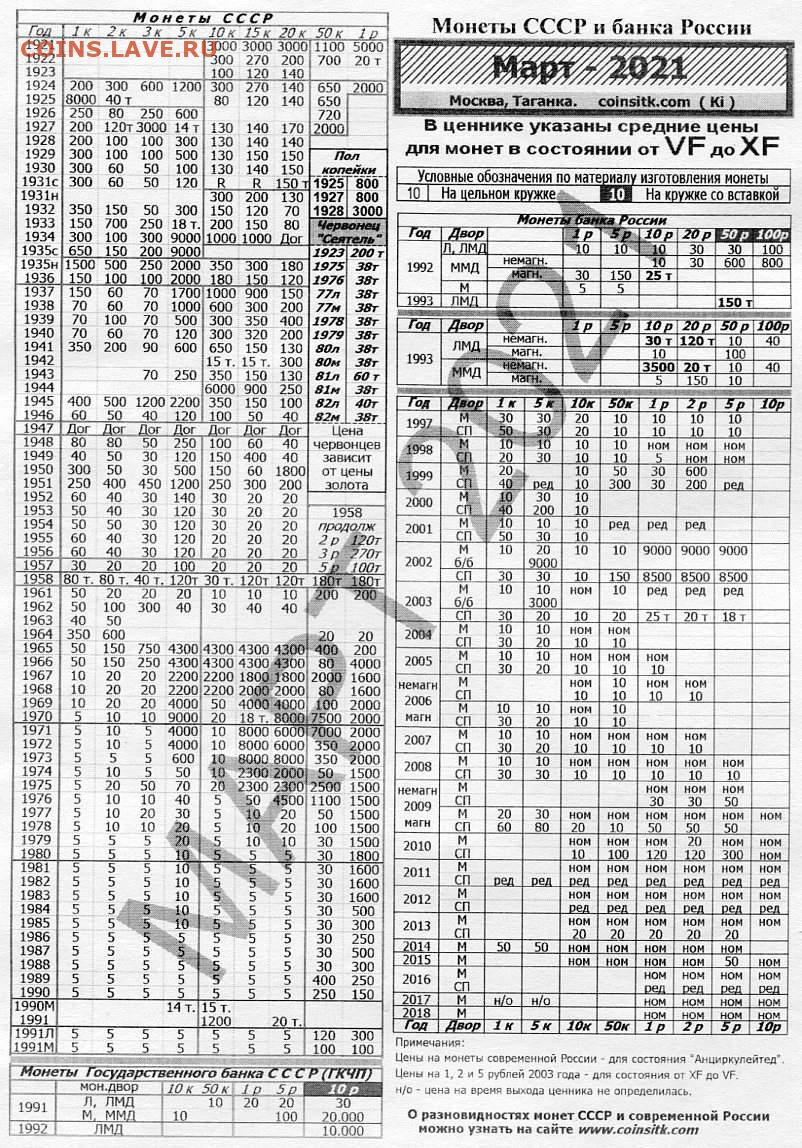 COINS.LAVE.RU
Монеты СССР
Год 1 к 2 к 3 к 5 к 10 к 15 к 20 к 50 к 1 р
1921 3000 3000 3000 1100 5000
1922 300 270 200 700 20 т
1923 100 120 140
1924 200 300 600 1200 300 270 140 650 2000
1925 8000 40 т 80 120 140 650
1926 250 80 250 600 720
1927 200 120т 3000 14 т 130 140 170 2000
1928 200 100 100 300 130 140 140
1929 300 100 100 500 130 150 150
1930 300 60 50 100 130 140 140
1931с 300 60 50 120 R R 150 т
1931н 300 200 130
1932 350 150 50 300 150 120 70
1933 150 700 250 18 т. 200 150 80
1934 300 100 300 9000 1000 1000 Дог
1935с 650 150 200 9000
1935н 1500 500 250 2000 350 300 180
1936 150 100 100 2000 180 150 120
1937 150 60 70 1700 1000 900 150
1938 70 60 70 1000 600 300 200
1939 70 100 70 500 300 350 400
1940 70 60 70 120 300 320 200
1941 350 200 90 600 650 150 130
1942 15 т. 15 т. 300
1943 70 250 350 150 130
1944 6000 900 250
1945 400 500 1200 2200 350 150 100
1946 60 50 40 120 100 50 40
1947 Дог Дог Дог Дог Дог Дог Дог
1948 80 80 50 250 100 60 40
1949 40 50 30 120 150 400 40
1950 300 50 30 500 150 60 1800
1951 250 400 450 1200 250 300 200
1952 60 40 30 140 30 20 20
1953 50 40 30 120 30 20 20
1954 50 50 30 120 30 20 20
1955 60 40 30 120 30 20 20
1956 60 40 30 120 30 20 20
1957 30 20 20 100 20 20 20
1958 80 т. 80 т. 40 т. 120т 30 т. 120т 120т 180т 180т
1961 50 20 20 20 10 10 10 200 200
1962 50 100 300 40 30 40 40
1963 40 50
1964 350 600 20 20
1965 50 150 750 4300 4300 4300 4300 400 200
1966 50 150 250 4300 4300 4300 4300 80 4000
1967 10 20 20 2200 2200 1800 1800 2000 1600
1968 10 20 20 2200 2200 2000 2000 80 1600
1969 10 20 20 4000 50 4000 4000 100 2000
1970 5 10 10 9000 20 18 т. 8000 7500 2000
1971 5 10 5 4000 10 8000 6000 7000 2000
1972 5 10 5 4000 10 8000 6000 350 2000
1973 5 5 5 600 10 8000 8000 350 2000
1974 5 10 5 50 10 2300 2000 50 1500
1975 5 20 50 70 20 2300 2300 2500 1500
1976 5 10 10 40 5 50 4500 1100 1500
1977 5 10 20 30 5 10 20 50 1500
1978 5 10 10 20 5 10 20 100 1500
1979 5 5 5 20 5 10 10 30 1500
1980 5 5 5 10 5 5 5 30 1800
1981 5 5 5 10 5 5 5 30 1600
1982 5 5 5 10 5 5 5 30 1600
1983 5 5 5 10 5 5 5 30 1600
1984 5 5 5 10 5 5 5 30 500
1985 5 5 5 10 5 5 5 30 300
1986 5 5 5 5 5 5 5 30 250
1987 5 5 5 5 5 5 5 30 500
1988 5 5 5 5 5 5 5 30 300
1989 5 5 5 5 5 5 5 400 250
1990 5 5 5 5 5 5 5 250 150
1990М 14 т. 15 т.
1991 1200 20 т.
1991Л 5 5 5 5 5 5 5 120 300
1991М 5 5 5 5 5 5 5 100 100
Пол
копейки
1925 800
1927 800
1928 3000
Червонец
"Сеятель"
1923 200 т
1975 38т
1976 38т
77л 38т
77м 38т
1978 38т
1979 38т
80л 38т
80м 38т
81л 60 т
81м 38т
82л 40т
82м 38т
Цена
червонцев
зависит
от цены
золота
1958
продолж
2 р 120т
3 р 270т
5 р 100т
Монеты Государственного банка СССР (ГКЧП)
мон.двор 10 к 50 к 1 р 5 р 10 р
1991 Л, ЛМД 10 20 20 30
М, ММД 10 100 20.000
1992 ЛМД 10.000
Монеты СССР и банка России
Март - 2021
Москва, Таганка. coinsitk.com ( Ki )
В ценнике указаны средние цены
для монет в состоянии от VF до XF
Условные обозначения по материалу изготовления монеты
10 На цельном кружке 10 На кружке со вставкой
Монеты банка России
Год Двор 1 р 5 р 10 р 20 р 50 р 100р
1992 Л, ЛМД 10 10 10 30 30 100
ММД немагн. 10 30 600 800
магн. 30 150 25 т
М 5 5
1993 ЛМД 150 т
Год Двор 1 р 5 р 10 р 20 р 50 р 100р
1993 ЛМД немагн. 30 т 120 т 10 40
магн. 10 100
ММД немагн. 3500 20 т 10 40
магн. 5 150 10
Год Двор 1 к 5 к 10к 50к 1 р 2 р 5 р 10р
1997 М 30 30 20 10 10 10 10
СП 50 30 20 10 10 10 10
1998 М 10 10 10 10 ном ном ном
СП 20 30 10 10 5 ном ном
1999 М 20 10 50 30 600
СП 40 ред 10 300 30 200 ред
2000 М 10 30 10
СП 40 200 10
2001 М 10 10 10 ред ред ред
СП 50 30 10
2002 М 10 20 10 10 9000 9000 9000
б/б 9000
СП 30 30 10 150 8500 8500 8500
2003 М 10 10 ном 10 ред ред ред
б/б 3000
СП 30 20 10 20 25 т 20 т 18 т
2004 М 10 10 ном ном
СП 30 20 10 10
2005 М 10 10 ном ном ном
СП 30 20 10 10 10
немагн М 10 ном ном
СП 10 10 10 10
2006
магн М 10 10 ном 10
СП 30 20 10 10
2007 М 10 10 ном ном ном ном
СП 30 20 10 10 10 10
2008 М 10 10 ном ном ном ном ном
СП 30 30 10 10 10 10 10
немагн М ном ном ном
СП 30 30 50
2009
магн М 20 30 ном ном ном ном ном ном
СП 60 80 20 10 50 50 50
2010 М ном ном ном 20 ном ном
СП 10 100 120 120 300 ном
2011 М ном ном ном ном ном ном
СП ред ред ред ред ред ред ред ред
2012 М ном ном ном ном ном ном
СП ред ред ред ред ред ред
2013 М ном ном ном ном ном ном
СП 20 20 20 20 20
2014 М 50 50 ном ном ном ном ном
2015 М ном ном ном ном 50 ном
2016 М ном ном ном ном
СП ред ред ред ред
2017 М н/о н/о ном ном ном ном
2018 М ном ном ном ном
Год Двор 1 к 5 к 10к 50к 1 р 2 р 5 р 10р
Примечания:
Цены на монеты современной России - для состояния "Анциркулейтед".
Цены на 1, 2 и 5 рублей 2003 года - для состояния от XF до VF.
н/о - цена на время выхода ценника не определилась.
О разновидностях монет СССР и современной России
можно узнать на сайте www.coinsitk.com
МАРТ 2021